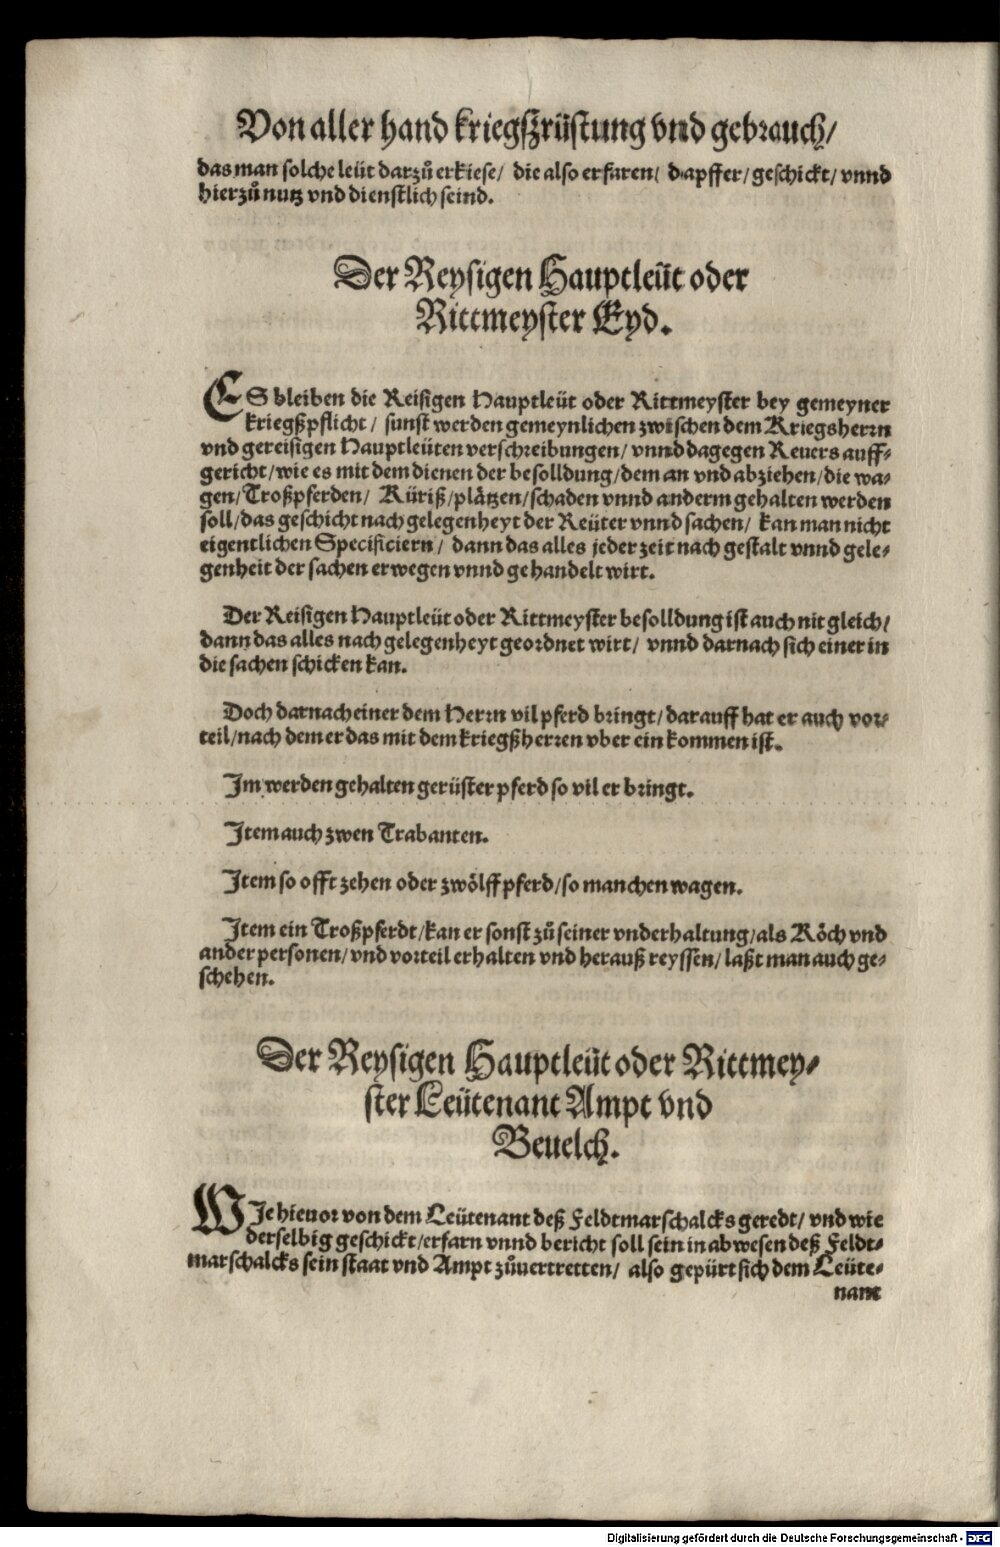 Von aller hand kriegßrüstung vnd gebrauch/
das man solche leüt darzů erkiese/ die also erfaren/ dapffer/ geschickt/ vnnd
hierzů nutz vnd dienstlich seind.
Der Reysigen Hauptleüt oder
Rittmeyster Eyd.
ES bleiben die Reisigen Hauptleüt oder Rittmeyster bey gemeyner
kriegßpflicht/ sunst werden gemeynlichen zwischen dem Kriegsherrn
vnd gereisigen Hauptleüten verschreibungen/ vnnd dagegen Reuers auff-
gericht/ wie es mit dem dienen der besolldung/ dem an vnd abziehen/ die wa-
gen/ Troßpferden/ Küriß/ plätzen/ schaden vnnd anderm gehalten werden
soll/ das geschicht nach gelegenheyt der Reüter vnnd sachen/ kan man nicht
eigentlichen Specificiern/ dann das alles jeder zeit nach gestalt vnnd gele-
genheit der sachen erwegen vnnd gehandelt wirt.
Der Reisigen Hauptleüt oder Rittmeyster besolldung ist auch nit gleich/
dann das alles nach gelegenheyt geordnet wirt/ vnnd darnach sich einer in
die sachen schicken kan.
Doch darnach einer dem Herrn vil pferd bringt/ darauff hat er auch vor-
teil/ nach dem er das mit dem kriegßherren vber ein kommen ist.
Jm werden gehalten gerüster pferd so vil er bringt.
Jtem auch zwen Trabanten.
Jtem so offt zehen oder zwölff pferd/ so manchen wagen.
Jtem ein Troßpferdt/ kan er sonst zů seiner vnderhaltung/ als Köch vnd
ander personen/ vnd vorteil erhalten vnd herauß reyssen/ laßt man auch ge-
schehen.
Der Reysigen Hauptleüt oder Rittmey-
ster Leütenant Ampt vnd
Beuelch.
WJe hieuor von dem Leütenant deß Feldtmarschalcks geredt/ vnd wie
derselbig geschickt/ erfarn vnnd bericht soll sein in abwesen deß Feldt-
marschalcks sein staat vnd Ampt zůuertretten/ also gepürt sich dem Leüte-
nant
Digitalisierung gefördert durch die Deutsche Forschungsgemeinschaft - DFG